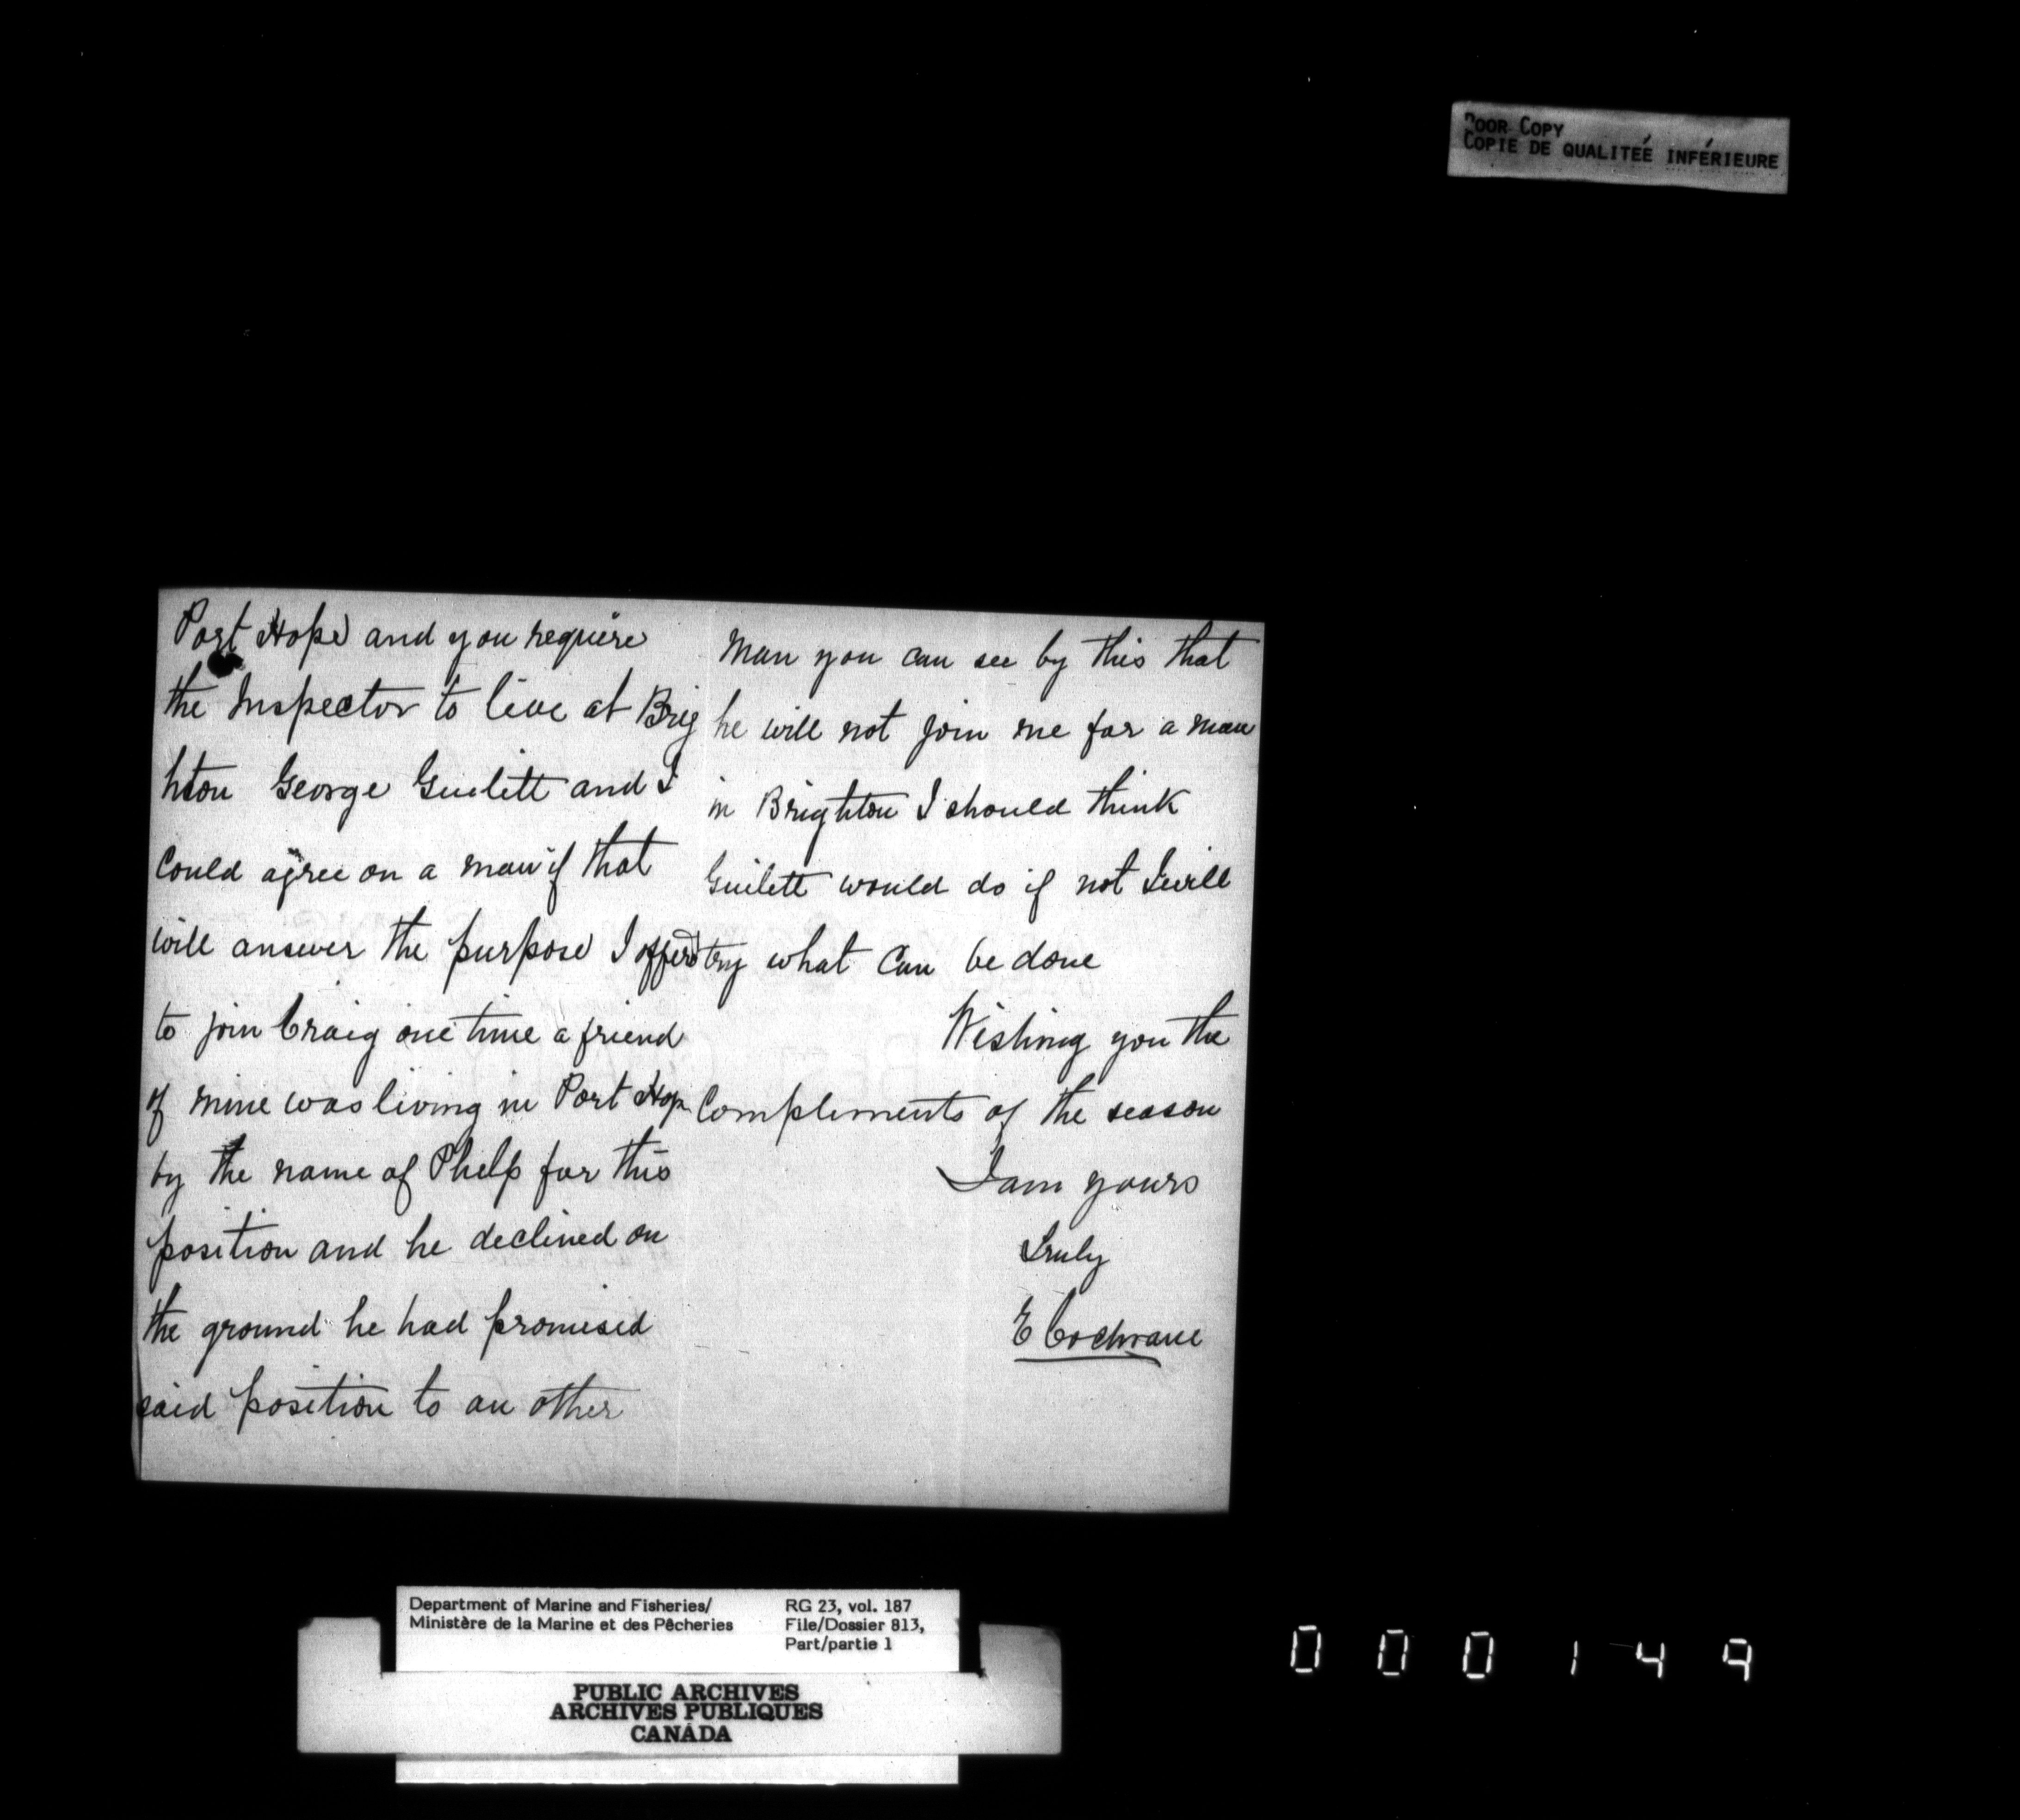 POOR COPY
COPIE DE QUALITEÉ INFÉRIEURE
Port Hope and you require
the Inspector to live at Brig
hton George Guilett and I
Could agree on a man if that
will answer the purpose I offerd
to join Craig one time a friend
of mine was living in Port Hop
by the name of Phelp for this
position and he declined on
the ground he had promised
said position to an other
man you can see by this that
he will not join me for a man
in Brighton I should think
Guilett would do if not I will
try what can be done
Wishing you the
Compliments of the season
I am yours
Truly
E Cochrane
Department of Marine and Fisheries/
Ministère de la Marine et des Pêcheries
RG 23, vol. 187
File/Dossier 813,
Part/partie 1
PUBLIC ARCHIVES
ARCHIVES PUBLIQUES
CANADA
000149